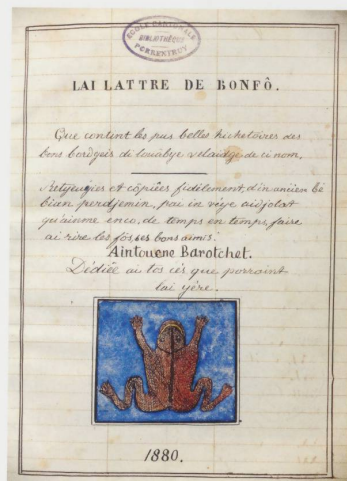 ECOLE CANTONALE
BIBLIOTHÈQUE
PORRENTRUY
LAI LATTRE DE BONFÔ.
Que contint les pus belles hichetoires des
bons bordgeis de
de ci nom.
et côpiêes fidèlement, d'in ancien bé
bian perdjemin, pou in véye aidjolat
qu'ainme enco, de temps en temps, faire
ai rire les fôs, ses bons aimis.
Aintouene Barotchet.
Dédiêe ai tos cés que porraint
lai yére.
1880.